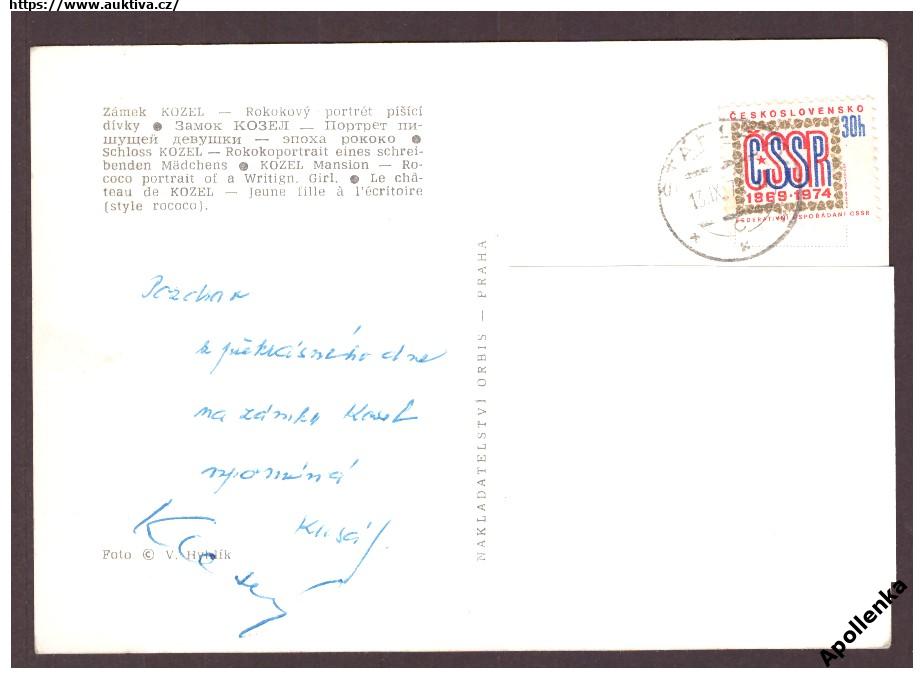 https://www.auktiva.cz/
Zámek KOZEL — Rokokový portrét píšící
dívky ● Замок КОЗЕЛ — Портрет пи-
шущей девушки — эпоха рококо ●
Schloss KOZEL — Rokokoportrait eines schrei-
benden Mädchens ● KOZEL Mansion — Ro-
coco portrait of a Writign. Girl. ● Le châ-
teau de KOZEL — Jeune fille à l'écritoire
(style rococo).
ČESKOSLOVENSKO
30h
ČSSR
1969·1974
FEDERATIVNÍ USPOŘÁDÁNÍ ČSSR
Pozdrav
z překrásného dne
na zámku Kozel
vzpomíná
NAKLADATELSTVÍ ORBIS — PRAHA
Foto © V. Hyhlík
Apollenka